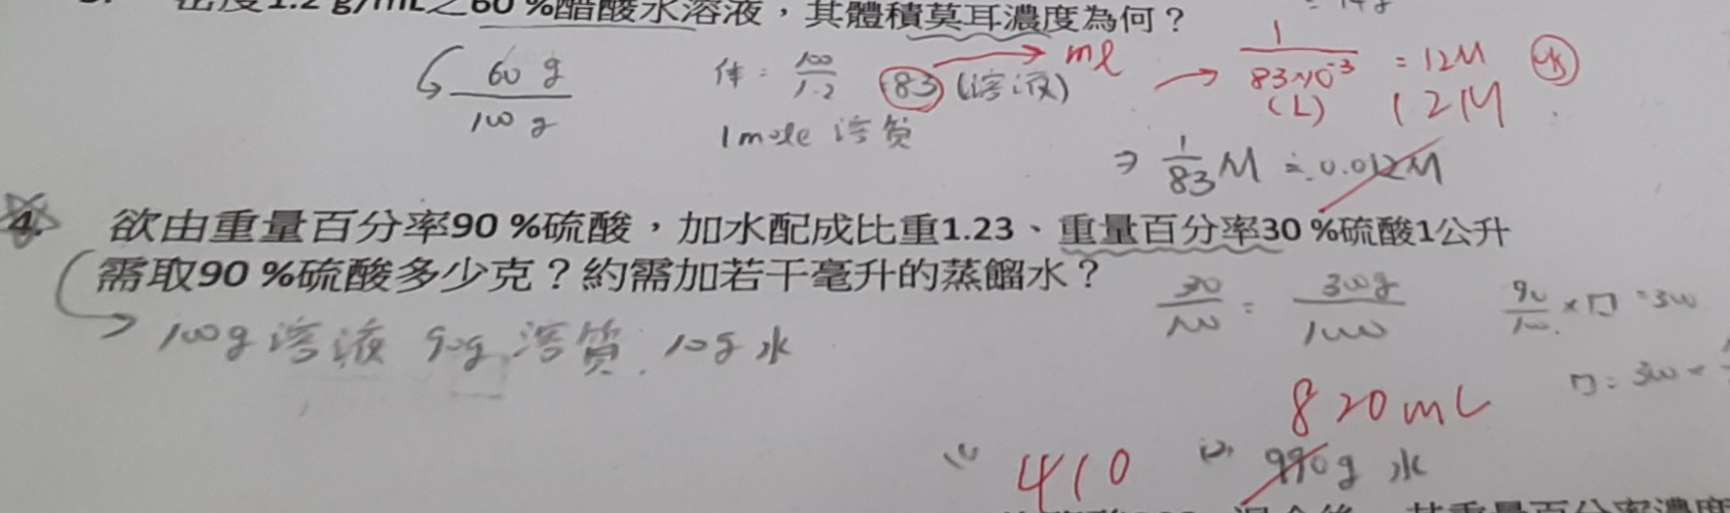 1.2 g/mL之60 %醋酸水溶液，其體積莫耳濃度為何？
60 g
100 g
体：100/1.2 83 (溶液) ml
1 mole 溶質
1
83×10⁻³ = 12M
(L) 12M
⇒ 1/83 M ≒ 0.012M
4. 欲由重量百分率90 %硫酸，加水配成比重1.23、重量百分率30 %硫酸1公升
需取90 %硫酸多少克？約需加若干毫升的蒸餾水？
30/100 = 300g/1000 90/100 × 口 = 300
100g 溶液 90g 溶質. 10g 水
口 = 300 ×
820 mL
(1) 410 (2) 990g 水